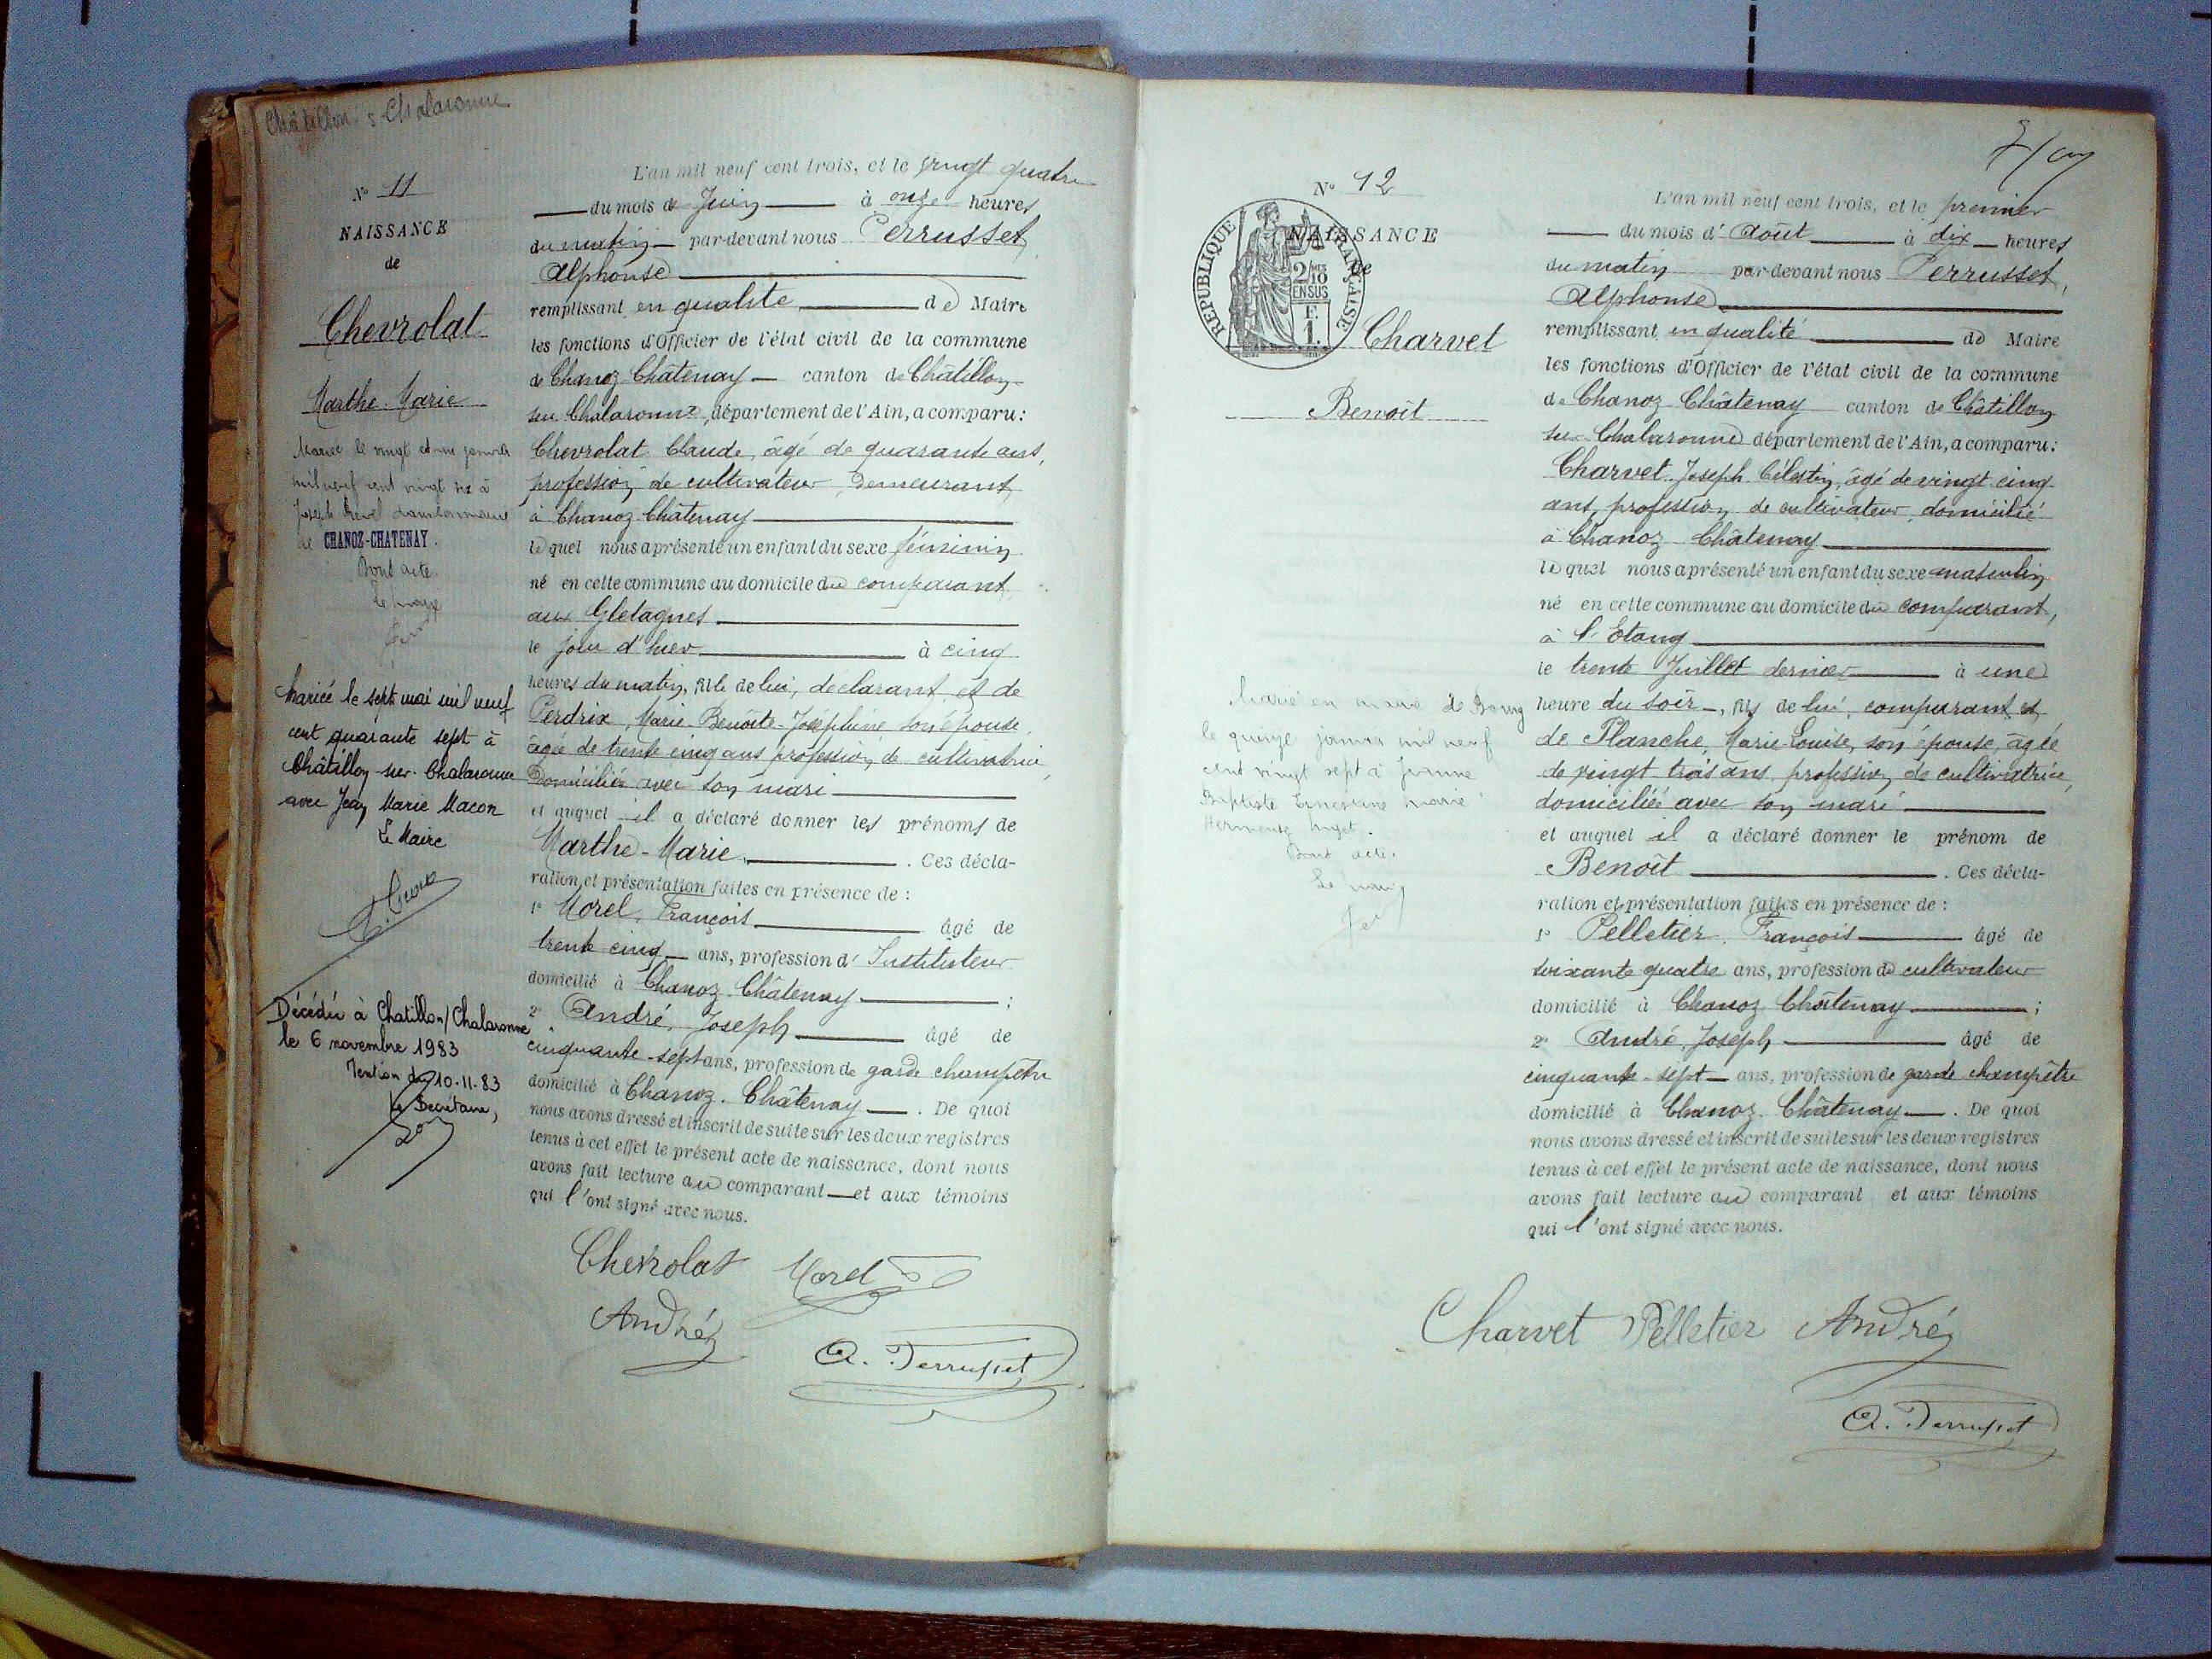 Châtillon s Chalaronne
N° 11
NAISSANCE
de
Chevrolat
Marthe-Marie
Mariée le vingt et un janvier
mil neuf cent vingt six à
Joseph
de CHANOZ-CHATENAY.
Dont acte.
Le maire
Mariée le sept mai mil neuf
cent quarante sept à
Châtillon-sur-Chalaronne
avec Jean Marie Macon
Le Maire
Décédée à Chatillon/Chalaronne
le 6 novembre 1983
Mention du 10-11-83
Le Secrétaire,
L'an mil neuf cent trois, et le vingt quatre
du mois de Juin à onze heures
du matin par-devant nous Perrusset,
Alphonse
remplissant en qualité de Maire
les fonctions d'Officier de l'état civil de la commune
de Chanoz-Châtenay canton de Châtillon-
sur Chalaronne, département de l'Ain, a comparu :
Chevrolat Claude, âgé de quarante ans,
profession de cultivateur, demeurant
à Chanoz-Châtenay
lequel nous a présenté un enfant du sexe féminin
né en cette commune au domicile du comparant,
aux Gletagnes
le jour d'hier à cinq
heures du matin, fille de lui, déclarant et de
Perdrix, Marie-Benoîte-Joséphine son épouse,
âgée de trente cinq ans profession de cultivatrice,
Domiciliée avec son mari
et auquel il a déclaré donner les prénoms de
Marthe-Marie. Ces décla-
ration et présentation faites en présence de :
1° Morel, François âgé de
trente cinq ans, profession d'Instituteur
domicilié à Chanoz-Châtenay ;
2° André, Joseph âgé de
cinquante-sept ans, profession de garde champêtre
domicilié à Chanoz-Châtenay. De quoi
nous avons dressé et inscrit de suite sur les deux registres
tenus à cet effet le présent acte de naissance, dont nous
avons fait lecture au comparant et aux témoins
qui l'ont signé avec nous.
Chevrolat Morel
André
A. Perrusset
N° 12
NAISSANCE
de
REPUBLIQUE FRANÇAISE
2/10 EN SUS
F. 1.
Charvet
Benoît
Marié en mairie de Bourg
le quinze janvier mil neuf
cent vingt sept à Jeanne
Baptiste Ernestine Marie
Dont acte.
Le maire
L'an mil neuf cent trois, et le premier
du mois d'Août à dix heures
du matin par-devant nous Perrusset,
Alphonse
remplissant en qualité de Maire
les fonctions d'Officier de l'état civil de la commune
de Chanoz-Châtenay canton de Châtillon
sur-Chalaronne département de l'Ain, a comparu :
Charvet Joseph Célestin, âgé de vingt cinq
ans, profession de cultivateur, domicilié
à Chanoz-Châtenay
lequel nous a présenté un enfant du sexe masculin
né en cette commune au domicile du comparant,
à l'Etang
le trente Juillet dernier à une
heure du soir, fils de lui, comparant et
de Planche, Marie-Louise, son épouse, âgée
de vingt-trois ans, profession de cultivatrice,
domiciliée avec son mari
et auquel il a déclaré donner le prénom de
Benoît. Ces décla-
ration et présentation faites en présence de :
1° Pelletier, François âgé de
soixante quatre ans, profession de cultivateur
domicilié à Chanoz-Châtenay ;
2° André, Joseph âgé de
cinquante-sept ans, profession de garde champêtre
domicilié à Chanoz-Châtenay. De quoi
nous avons dressé et inscrit de suite sur les deux registres
tenus à cet effet le présent acte de naissance, dont nous
avons fait lecture au comparant et aux témoins
qui l'ont signé avec nous.
Charvet Pelletier André
A. Perrusset